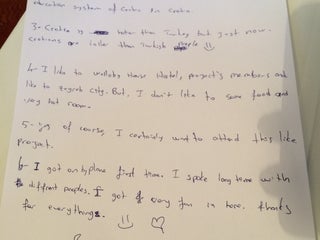 education system of Croatia in Croatia.
3- Croatia is hotter than Turkey but just now.
Croatians are taller than Turkish people
4- I like to Hostel, project's members and
like to Zagreb city. But, I don't like to some food and
very hot room.
5- yes of course, I certainly want to attend this like
project.
6- I got on plane first time. I spoke long time with
different peoples. I got very fun in here. Thanks
for everything.